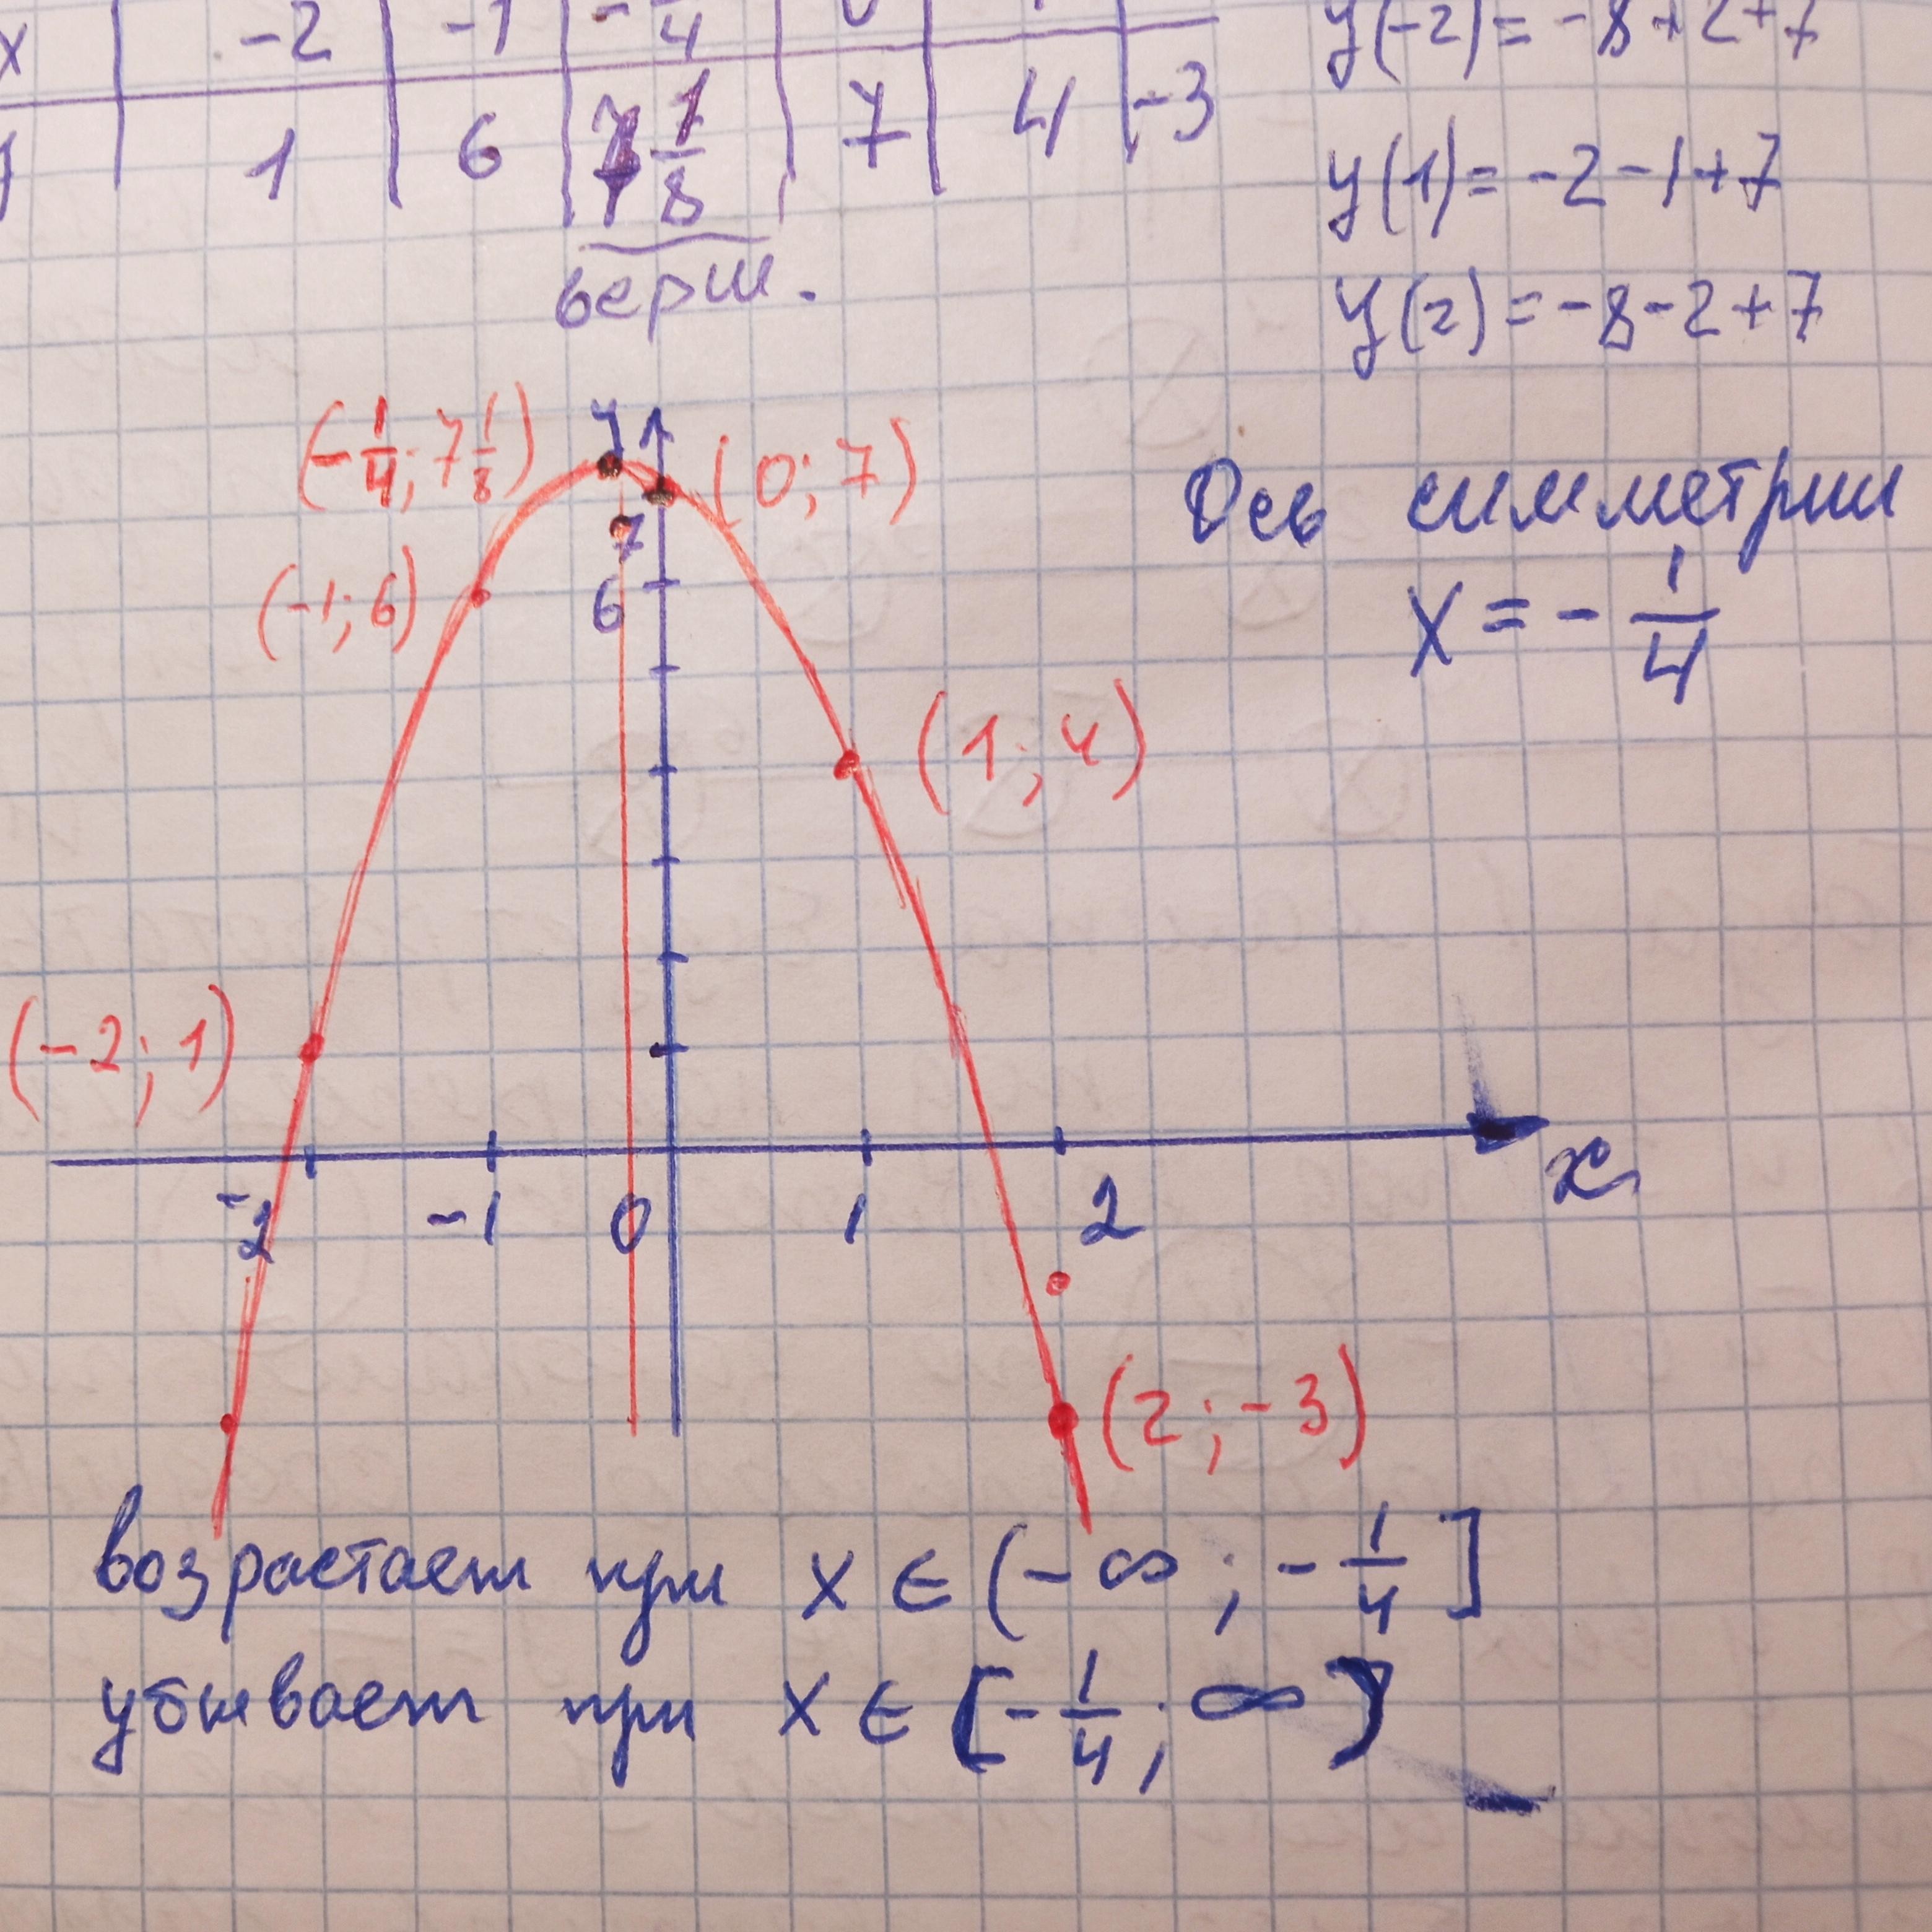 x | -2 | -1 | -1/4 | 0 | 1 |
y | 1 | 6 | 7 1/8 | 7 | 4 | -3
верш.
y(-2) = -8+2+7
y(1) = -2-1+7
y(2) = -8-2+7
(-1/4; 7 1/8)
y
(0; 7)
7
(-1; 6)
6
Ось симметрии
x = -1/4
(1; 4)
(-2; 1)
x
-2 -1 0 1 2
(2; -3)
возрастает при x ∈ (-∞; -1/4]
убывает при x ∈ [-1/4; ∞)